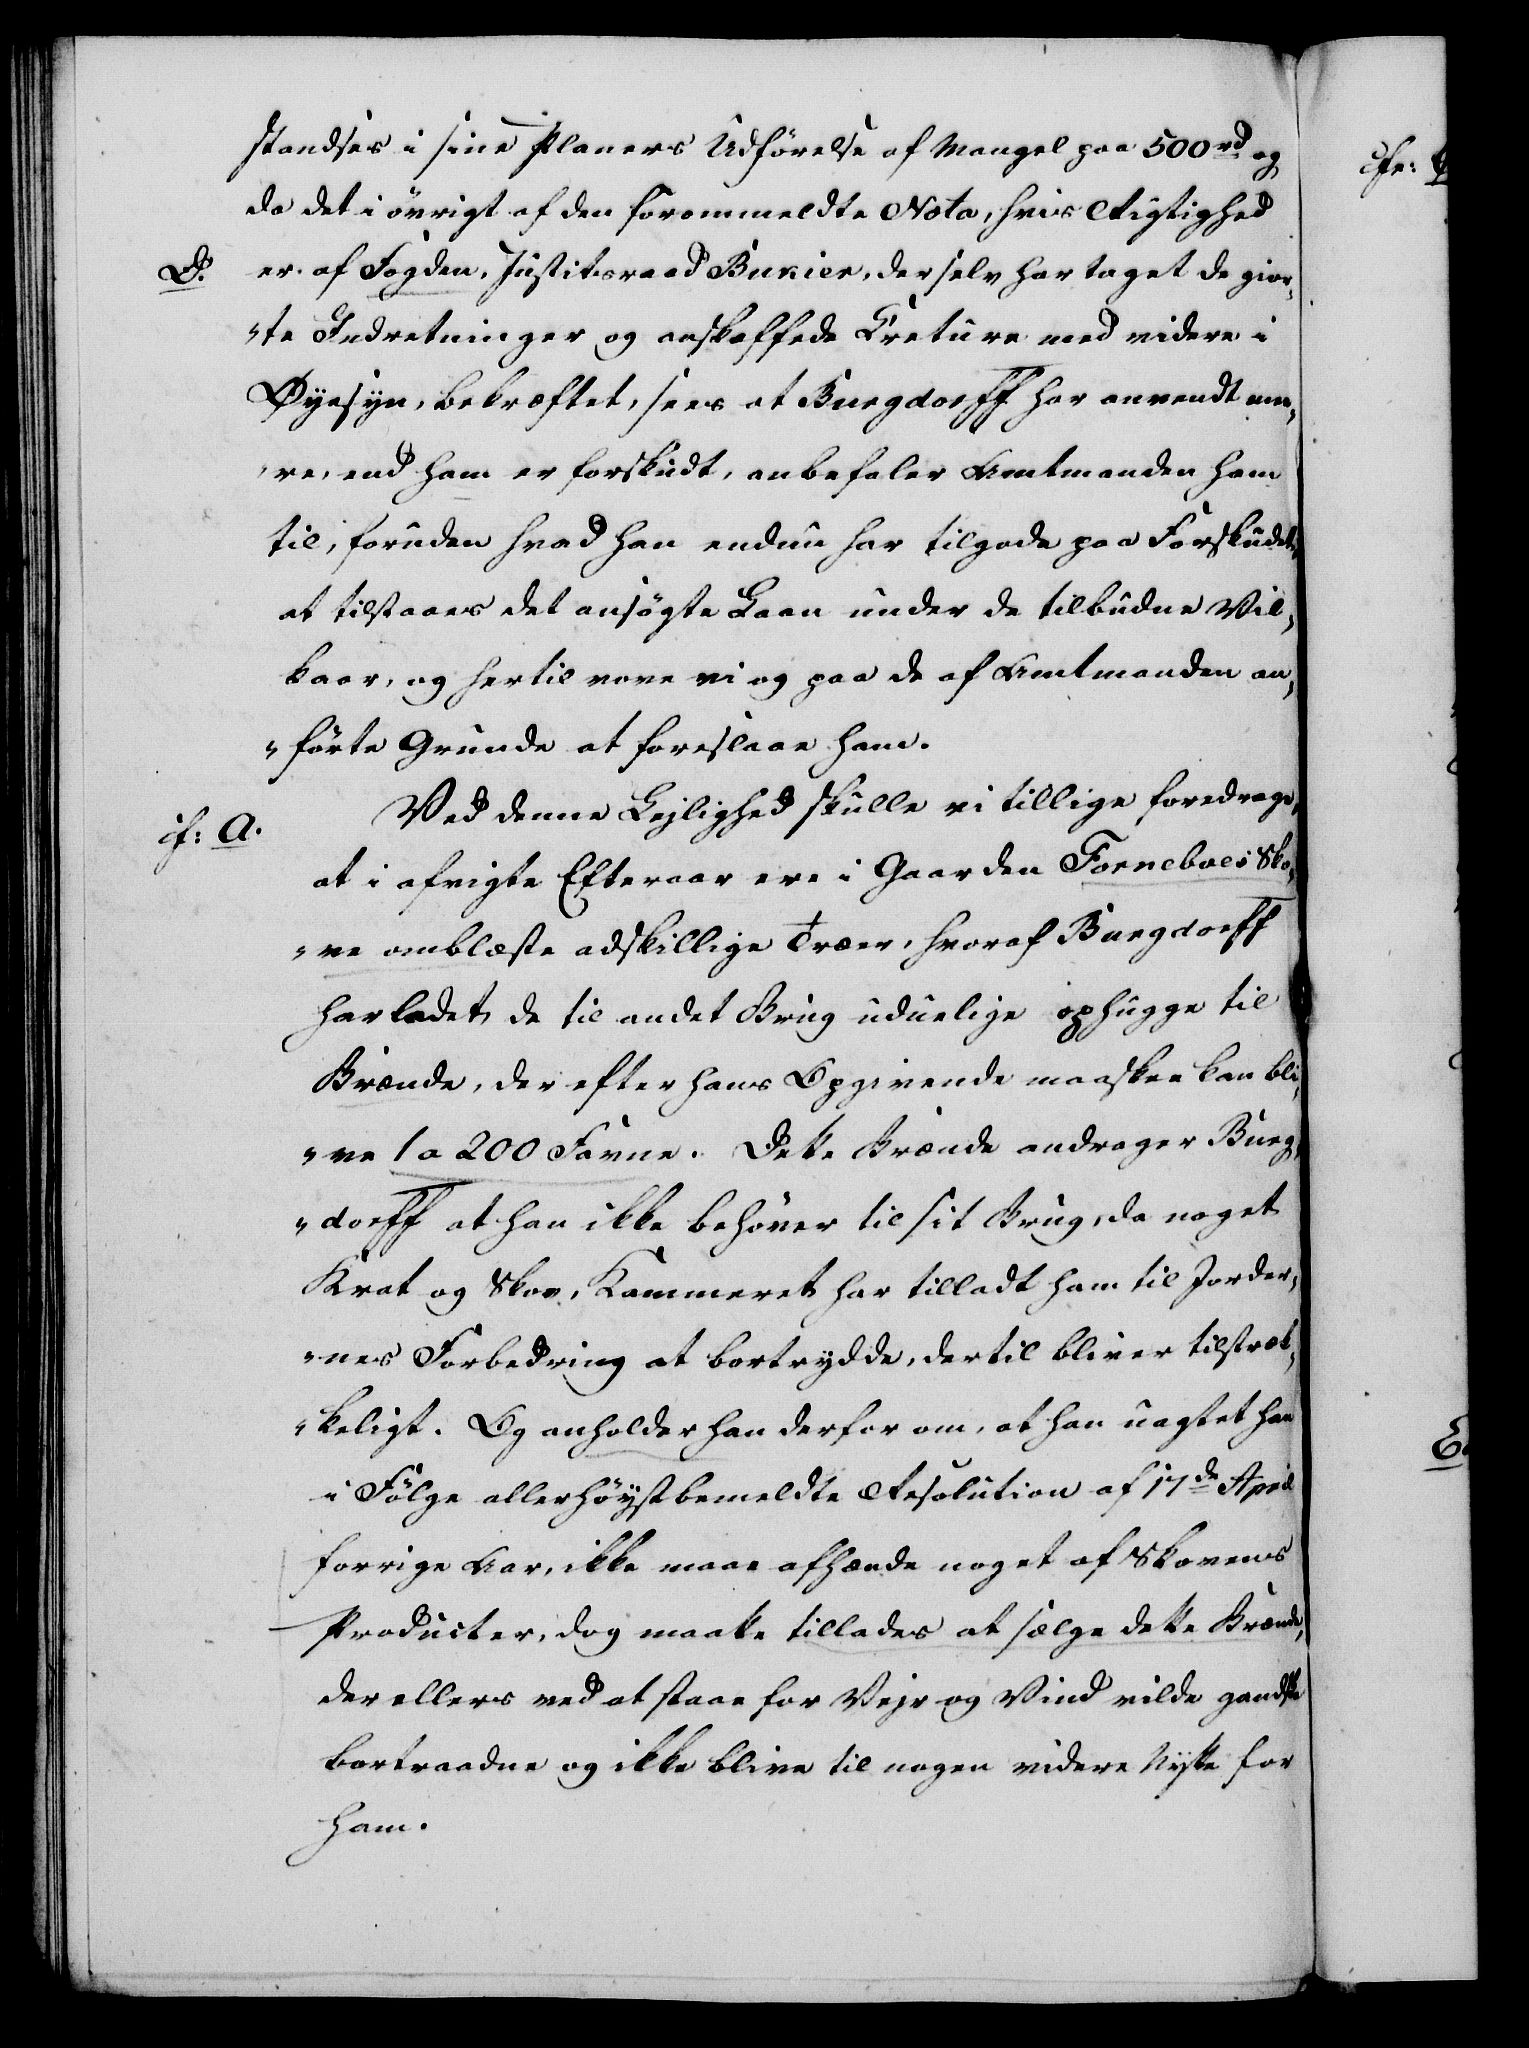 standses i sine Planers Udførelse af Mangel paa 500 rd og
da det i øvrigt af den forommeldte Nota, hvis Rigtighed
D. er af Fogden, Justitsraad Burier, der selv har taget de gior,
"te Indretninger og anskaffede Creture med videre i
Øyesyn, bekræftet, sees at Burgdorff har anvendt me,
"re, end ham er forskudt, anbefaler Amtmanden ham
til, foruden hvad han endnu har tilgode paa Forskudet,
at tilstaaes det ansøgte Laan under de tilbudne Vil,
kaar, og hertil vove vi og paa de af Amtmanden an,
"førte Grunde at foreslaae ham.
cf: A. Ved denne Lejlighed skulle vi tillige foredrage,
at i afvigte Efteraar ere i Gaarden Forneboes Sko,
"ve omblæste adskillige Træer, hvoraf Burgdorff
har ladet de til andet Brug uduelige ophugge til
Brænde, der efter hans Opgivende maaskee kan bli,
"ve 1 a 200 Favne. Dette Brænde andrager Burg,
"dorff at han ikke behøver til sit Brug, da noget
Krat og Skov, Kammeret har tilladt ham til Jorder,
"nes Forbedring at bortrydde, dertil bliver tilstræk,
"keligt. Og anholder han derfor om, at han uagtet han
i Følge allerhøystbemeldte Resolution af 17de April
forrige Aar, ikke maae afhænde noget af Skovens
Producter, dog maatte tillades at sælge dette Brænde,
der ellers ved at staae for Vejr og Vind vilde gandske
bortraadne og ikke blive til nogen videre Nytte for
ham.
cfr: